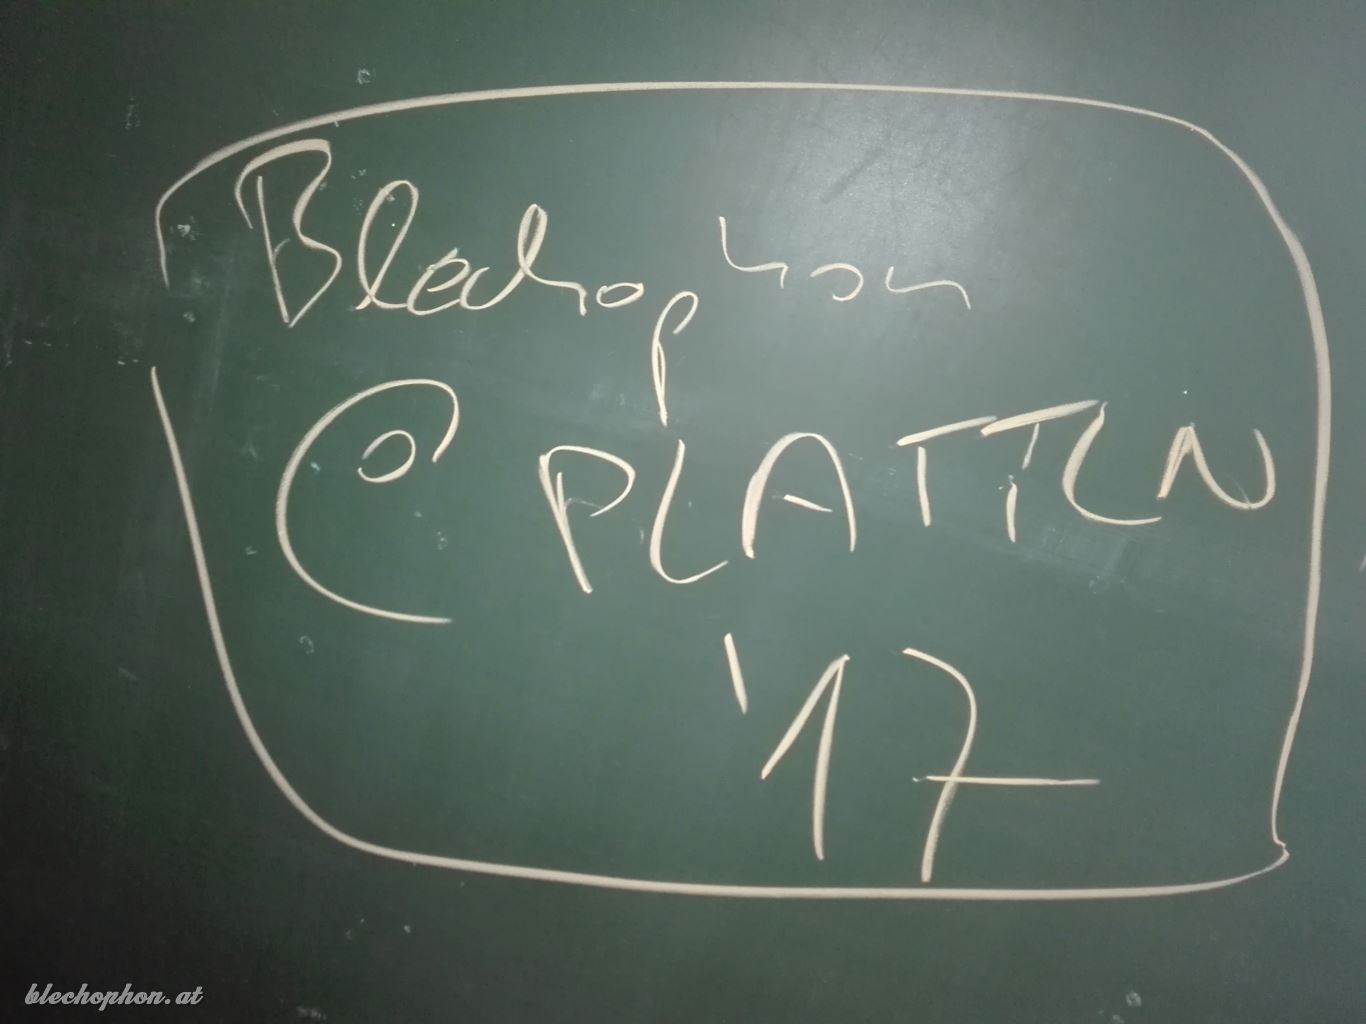 Blechophon
@ PLATTEN
'17
blechophon.at